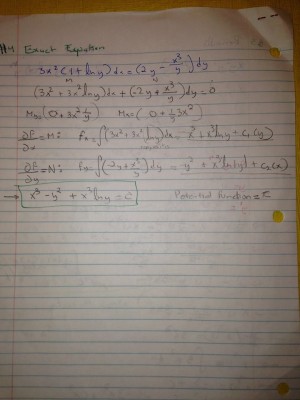 #4 Exact Equation
3x²(1 + ln y)dx = (2y - x³/y)dy
M
(3x² + 3x² ln y)dx + (-2y + x³/y)dy = 0
M_y = (0 + 3x² 1/y) (0 + 1/y 3x²)
∂F/∂x = M: F = ∫(3x² + 3x² ln y)dx = x³ + x³ ln y + C₁(y)
∂F/∂y = N: F = ∫(-2y + x³/y)dy = -y² + x³ ln|y| + C₂(x)
→ x³ - y² + x³ ln y = C Potential function = F